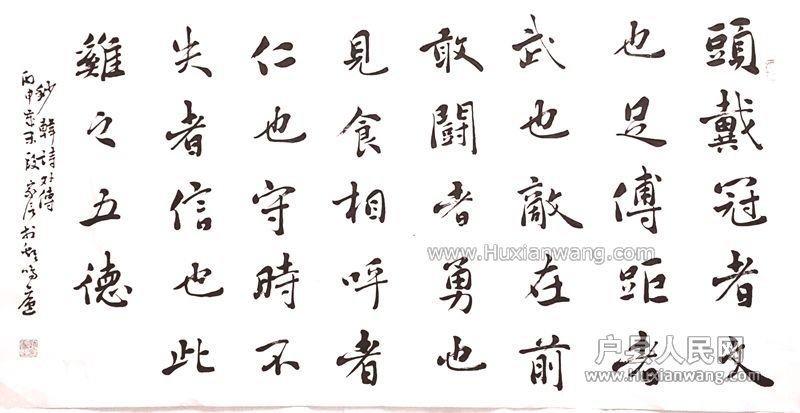 頭戴冠者文
也足傅距者
武也敵在前
敢鬪者勇也
見食相呼者
仁也守時不
失者信也此
雞之五德
鈔韓詩外傳
丙申
www.Huxianwang.com
户县人民网
www.Huxianwang.com